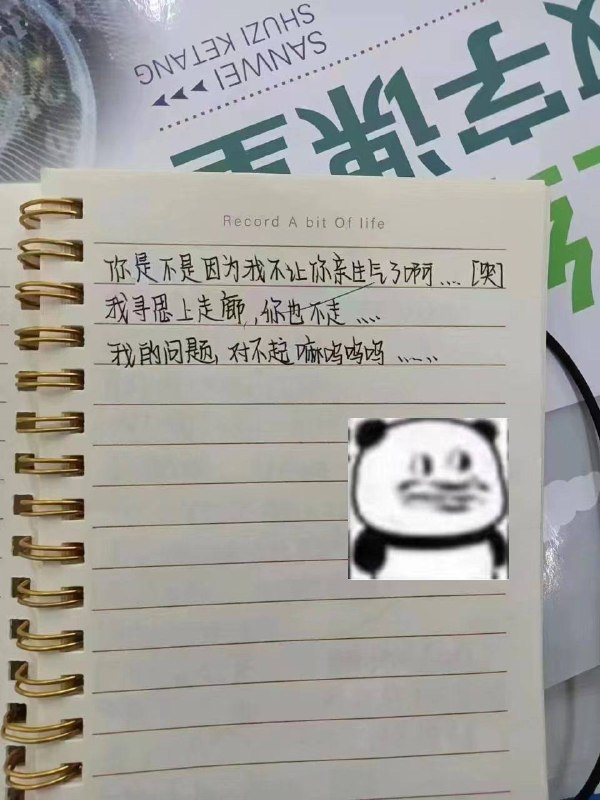 SHUZI KETANG
SANWEI
数字课堂
Record A bit Of life
你是不是因为我不让你亲生气了啊.... [哭]
我寻思上走廊,你也不走....
我的问题,对不起嘛呜呜呜......